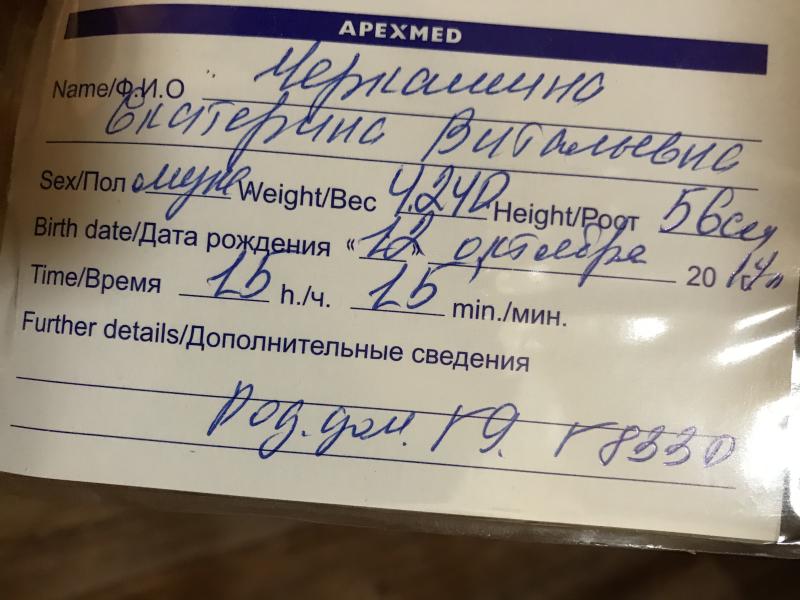 APEXMED
Name/Ф.И.О Черкашина
Екатерина Витальевна
Sex/Пол муж Weight/Вес 4.240 Height/Рост 56см
Birth date/Дата рождения « 12 » октября 20 17 г.
Time/Время 15 h./ч. 15 min./мин.
Further details/Дополнительные сведения
Род. дом. г 9. г 8330